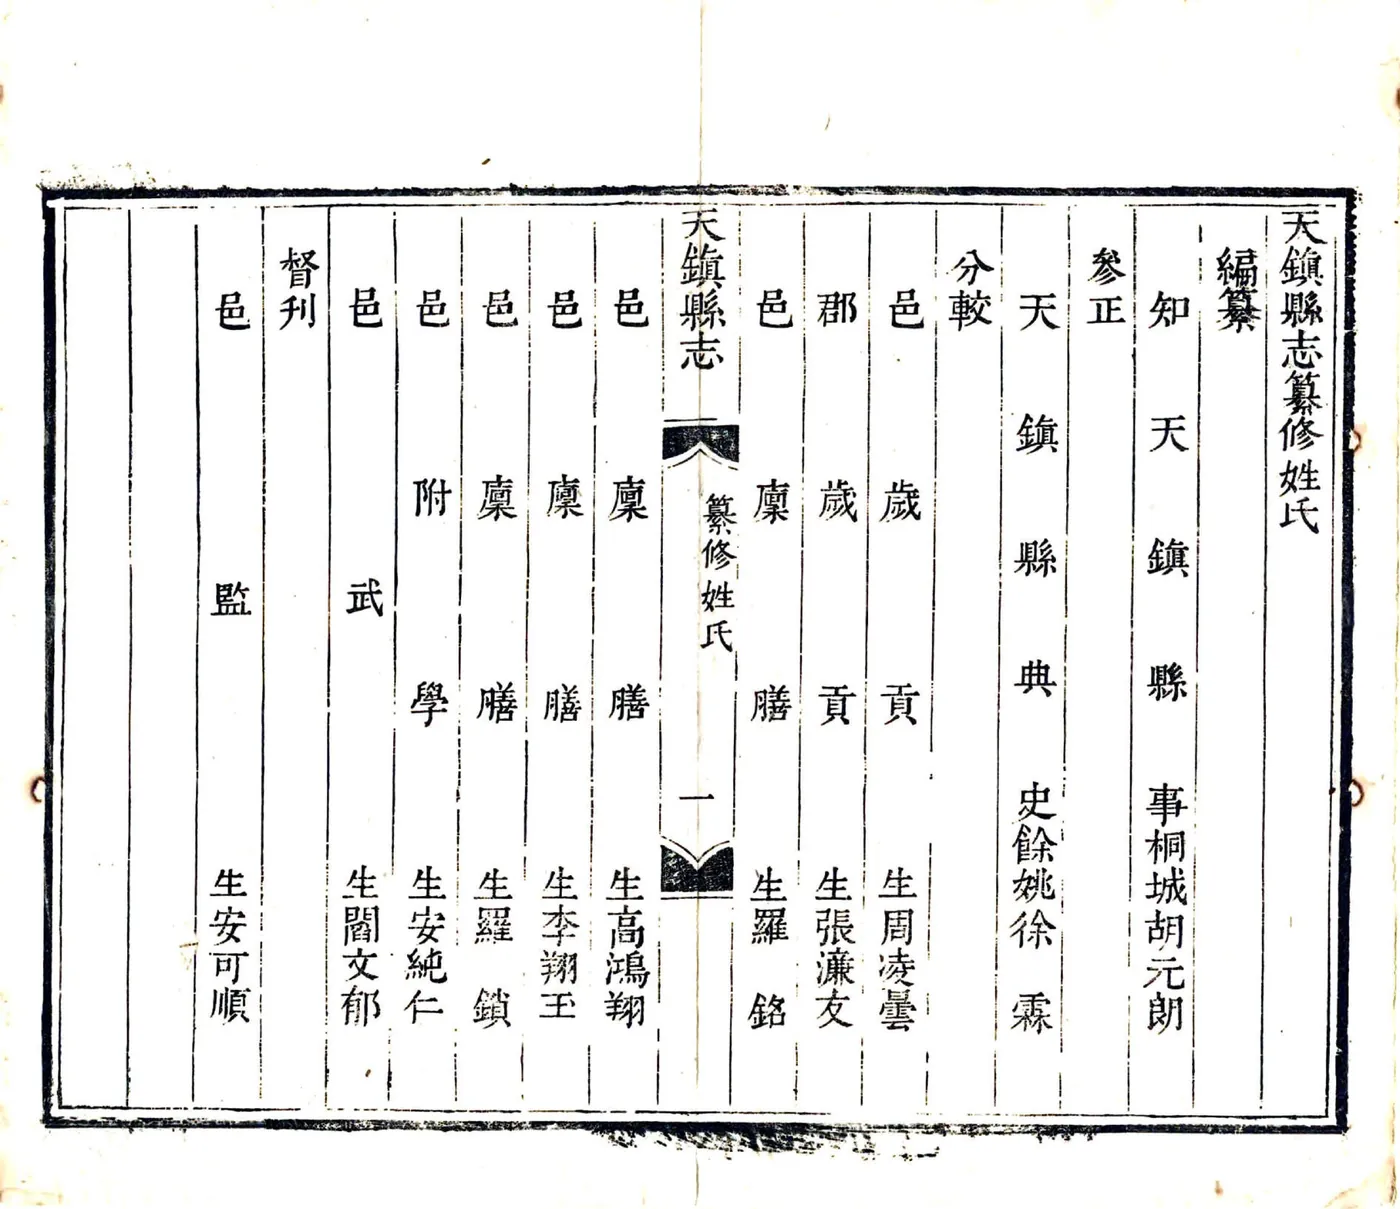 天鎮縣志纂修姓氏
編纂
知天鎮縣事桐城胡元朗
參正
天鎮縣典史餘姚徐霖
分較
邑歲貢生周凌曇
郡歲貢生張濂友
邑廩膳生羅銘
天鎮縣志
纂修姓氏
一
邑廩膳生高鴻翔
邑廩膳生李翔玉
邑廩膳生羅鎖
邑附學生安純仁
邑武生閻文郁
督刋
邑監生安可順